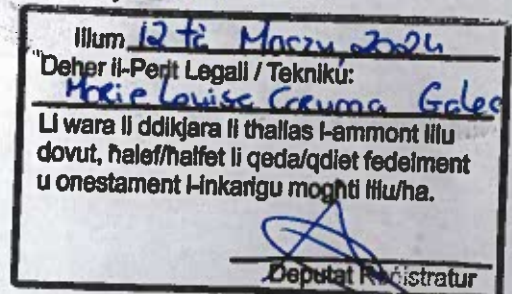 Illum 12 ta Marzu, 2024
"Deher il-Perit Legali / Tekniku:
Marie Louise Caruma Galea
Li wara li ddikjara li thallas l-ammont lilu
dovut, ħalef/ħalfet li qeda/qdiet fedelment
u onestament l-inkarigu mogħti lilu/ha.
Deputat Reġistratur